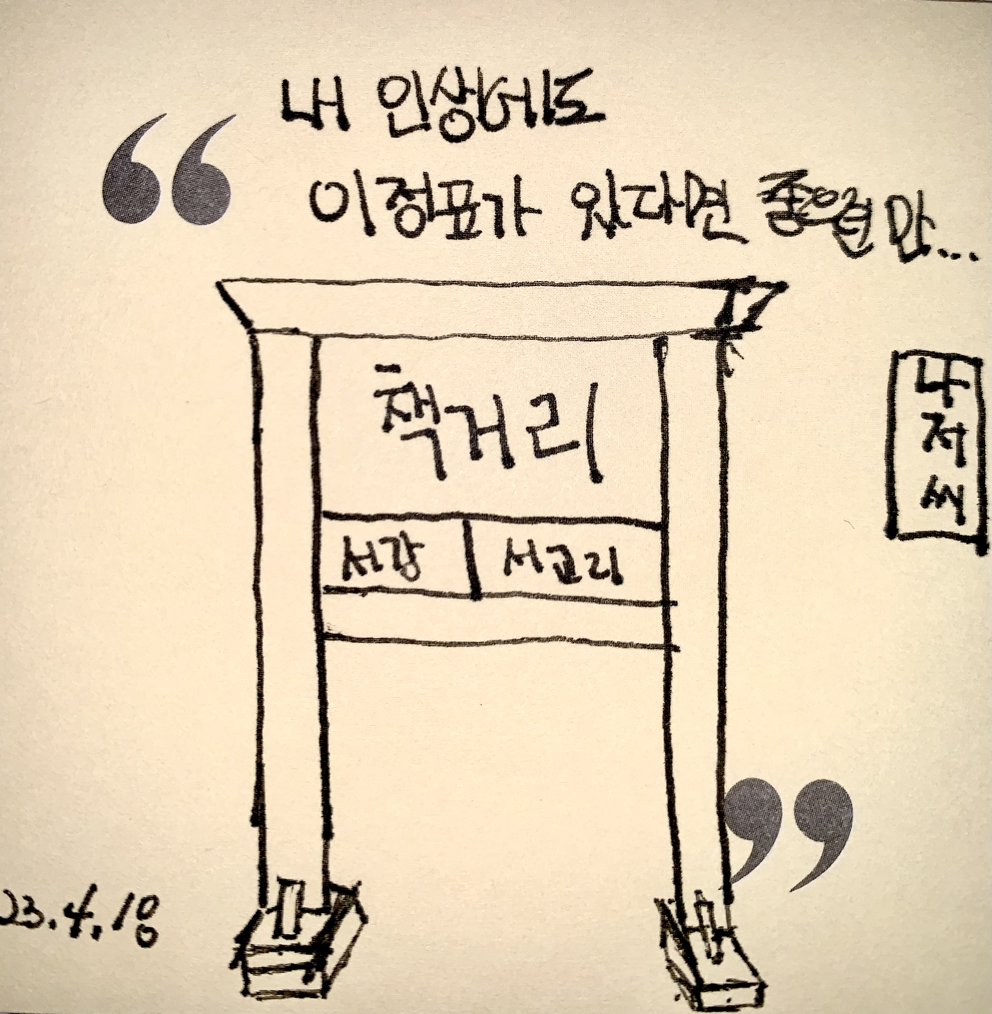 내 인생에도
이정표가 있다면 좋으련만...
책거리
서강 서교리
나
저
씨
23.4.18